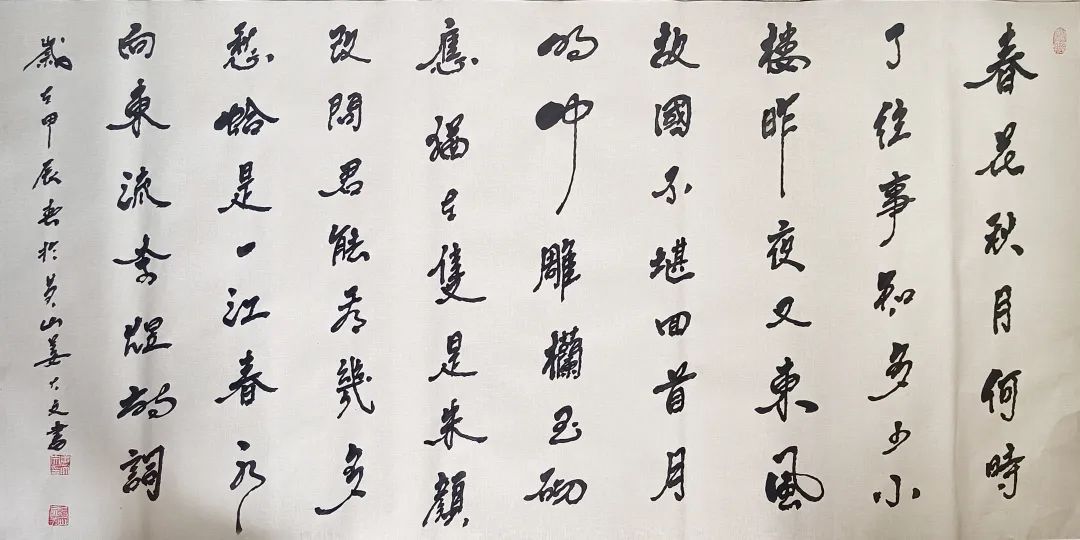 春花秋月何時
了往事知多少小
樓昨夜又東風
故國不堪回首月
明中雕欄玉砌
應猶在隻是朱顏
改問君能有幾多
愁恰是一江春水
向東流李煜的詞
歲在甲辰春於山姜大文書